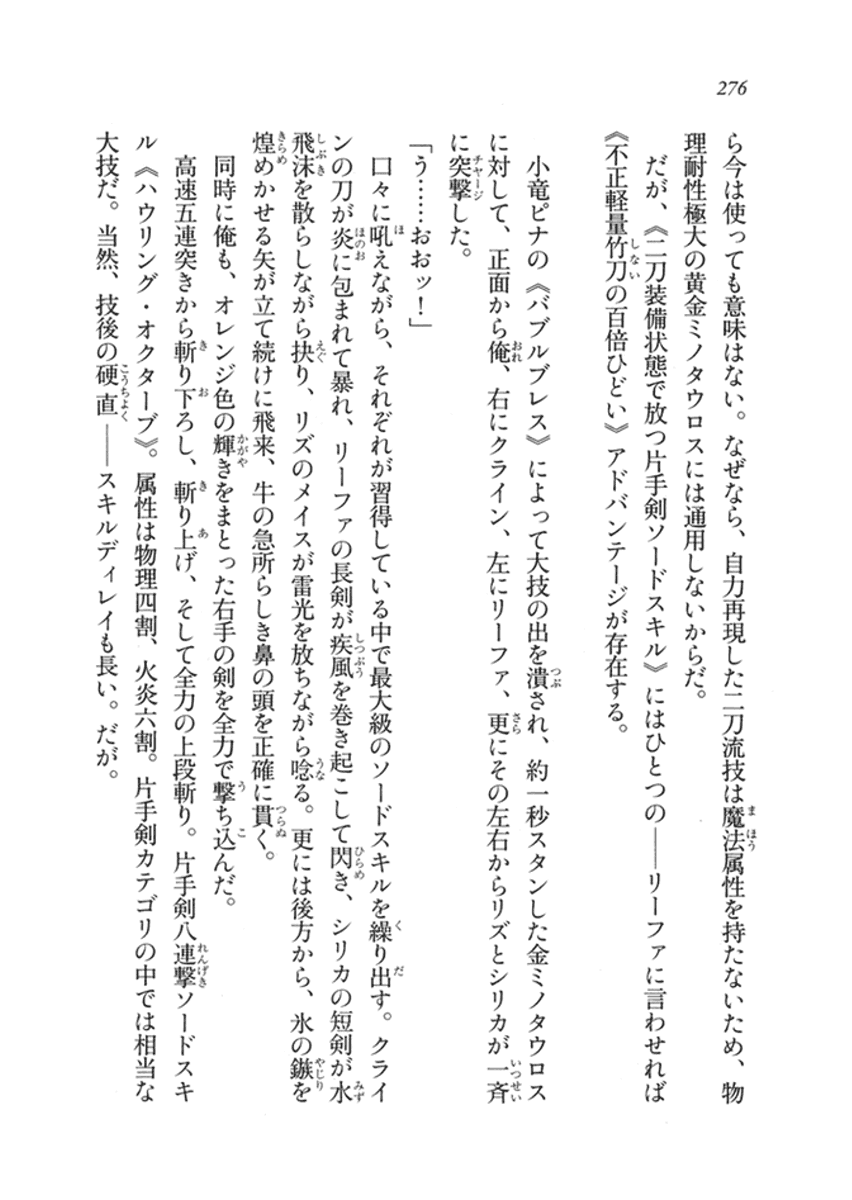 276
ら今は使っても意味はない。なぜなら、自力再現した二刀流技は魔法属性を持たないため、物
理耐性極大の黄金ミノタウロスには通用しないからだ。
だが、《二刀装備状態で放つ片手剣ソードスキル》にはひとつの――リーファに言わせれば
《不正軽量竹刀の百倍ひどい》アドバンテージが存在する。
小竜ピナの《バブルブレス》によって大技の出を潰され、約一秒スタンした金ミノタウロス
に対して、正面から俺、右にクライン、左にリーファ、更にその左右からリズとシリカが一斉
に突撃した。
「う……おおッ！」
口々に吼えながら、それぞれが習得している中で最大級のソードスキルを繰り出す。クライ
ンの刀が炎に包まれて暴れ、リーファの長剣が疾風を巻き起こして閃き、シリカの短剣が水
飛沫を散らしながら抉り、リズのメイスが雷光を放ちながら唸る。更には後方から、氷の鏃を
煌めかせる矢が立て続けに飛来、牛の急所らしき鼻の頭を正確に貫く。
同時に俺も、オレンジ色の輝きをまとった右手の剣を全力で撃ち込んだ。
高速五連突きから斬り下ろし、斬り上げ、そして全力の上段斬り。片手剣八連撃ソードスキ
ル《ハウリング・オクターブ》。属性は物理四割、火炎六割。片手剣カテゴリの中では相当な
大技だ。当然、技後の硬直――スキルディレイも長い。だが。